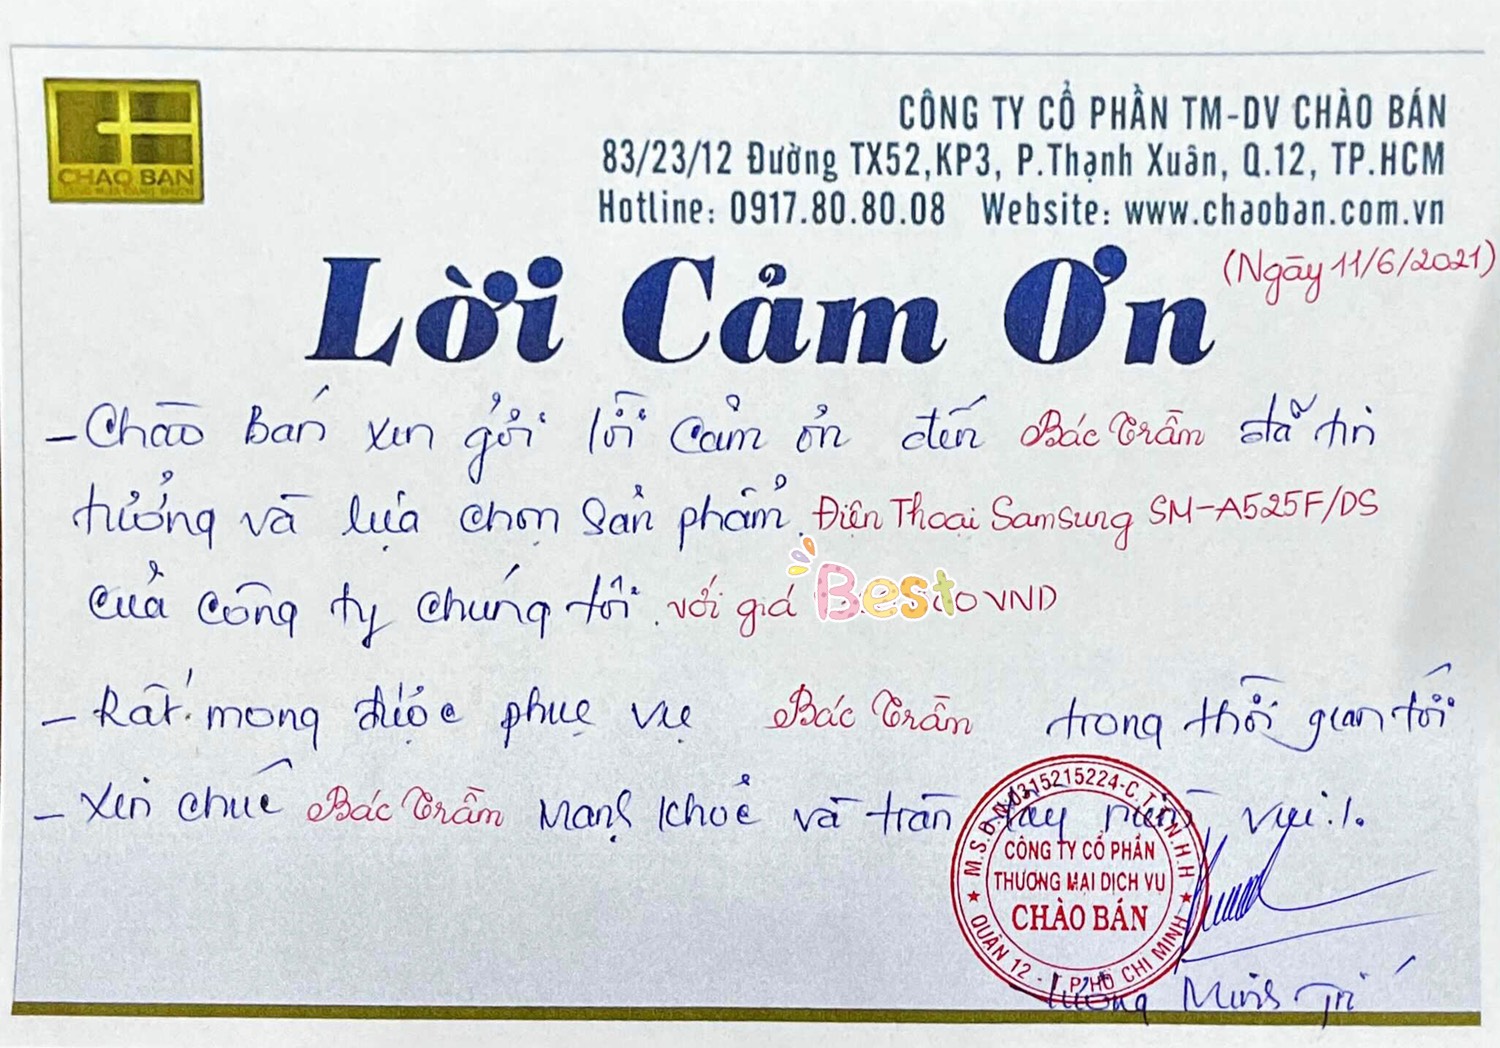 CHAO BAN
CÔNG TY CỔ PHẦN TM-DV CHÀO BÁN
83/23/12 Đường TX52,KP3, P.Thạnh Xuân, Q.12, TP.HCM
Hotline: 0917.80.80.08 Website: www.chaoban.com.vn
Lời Cảm Ơn
(Ngày 11/6/2021)
- Chào Bán xin gửi lời cảm ơn đến Bác Trầm đã tin
tưởng và lựa chọn sản phẩm. Điện Thoại Samsung SM-A525F/DS
của công ty chúng tôi. với giá Best 00 VND
- Rất mong được phục vụ Bác Trầm trong thời gian tới
- Xin chúc Bác Trầm mạnh khoẻ và tràn đầy niềm vui./.
M.S.D.N:0315215224-C.T.TN.H.H
CÔNG TY CỔ PHẦN
THƯƠNG MẠI DỊCH VỤ
CHÀO BÁN
QUẬN 12 - T.P HỒ CHÍ MINH
Minh Trí